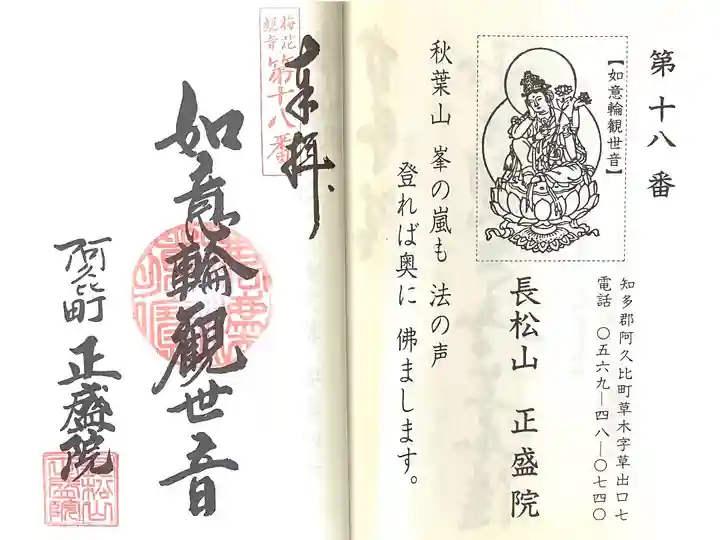 第十八番
【如意輪観世音】
知多郡阿久比町草木字草出口七
電話 〇五六九―四八―〇七四〇
長松山 正盛院
秋葉山 峯の嵐も 法の声
登れば奥に 佛まします。
奉拝
梅花
観音
第十八番
如意輪観世音
阿久比町 正盛院